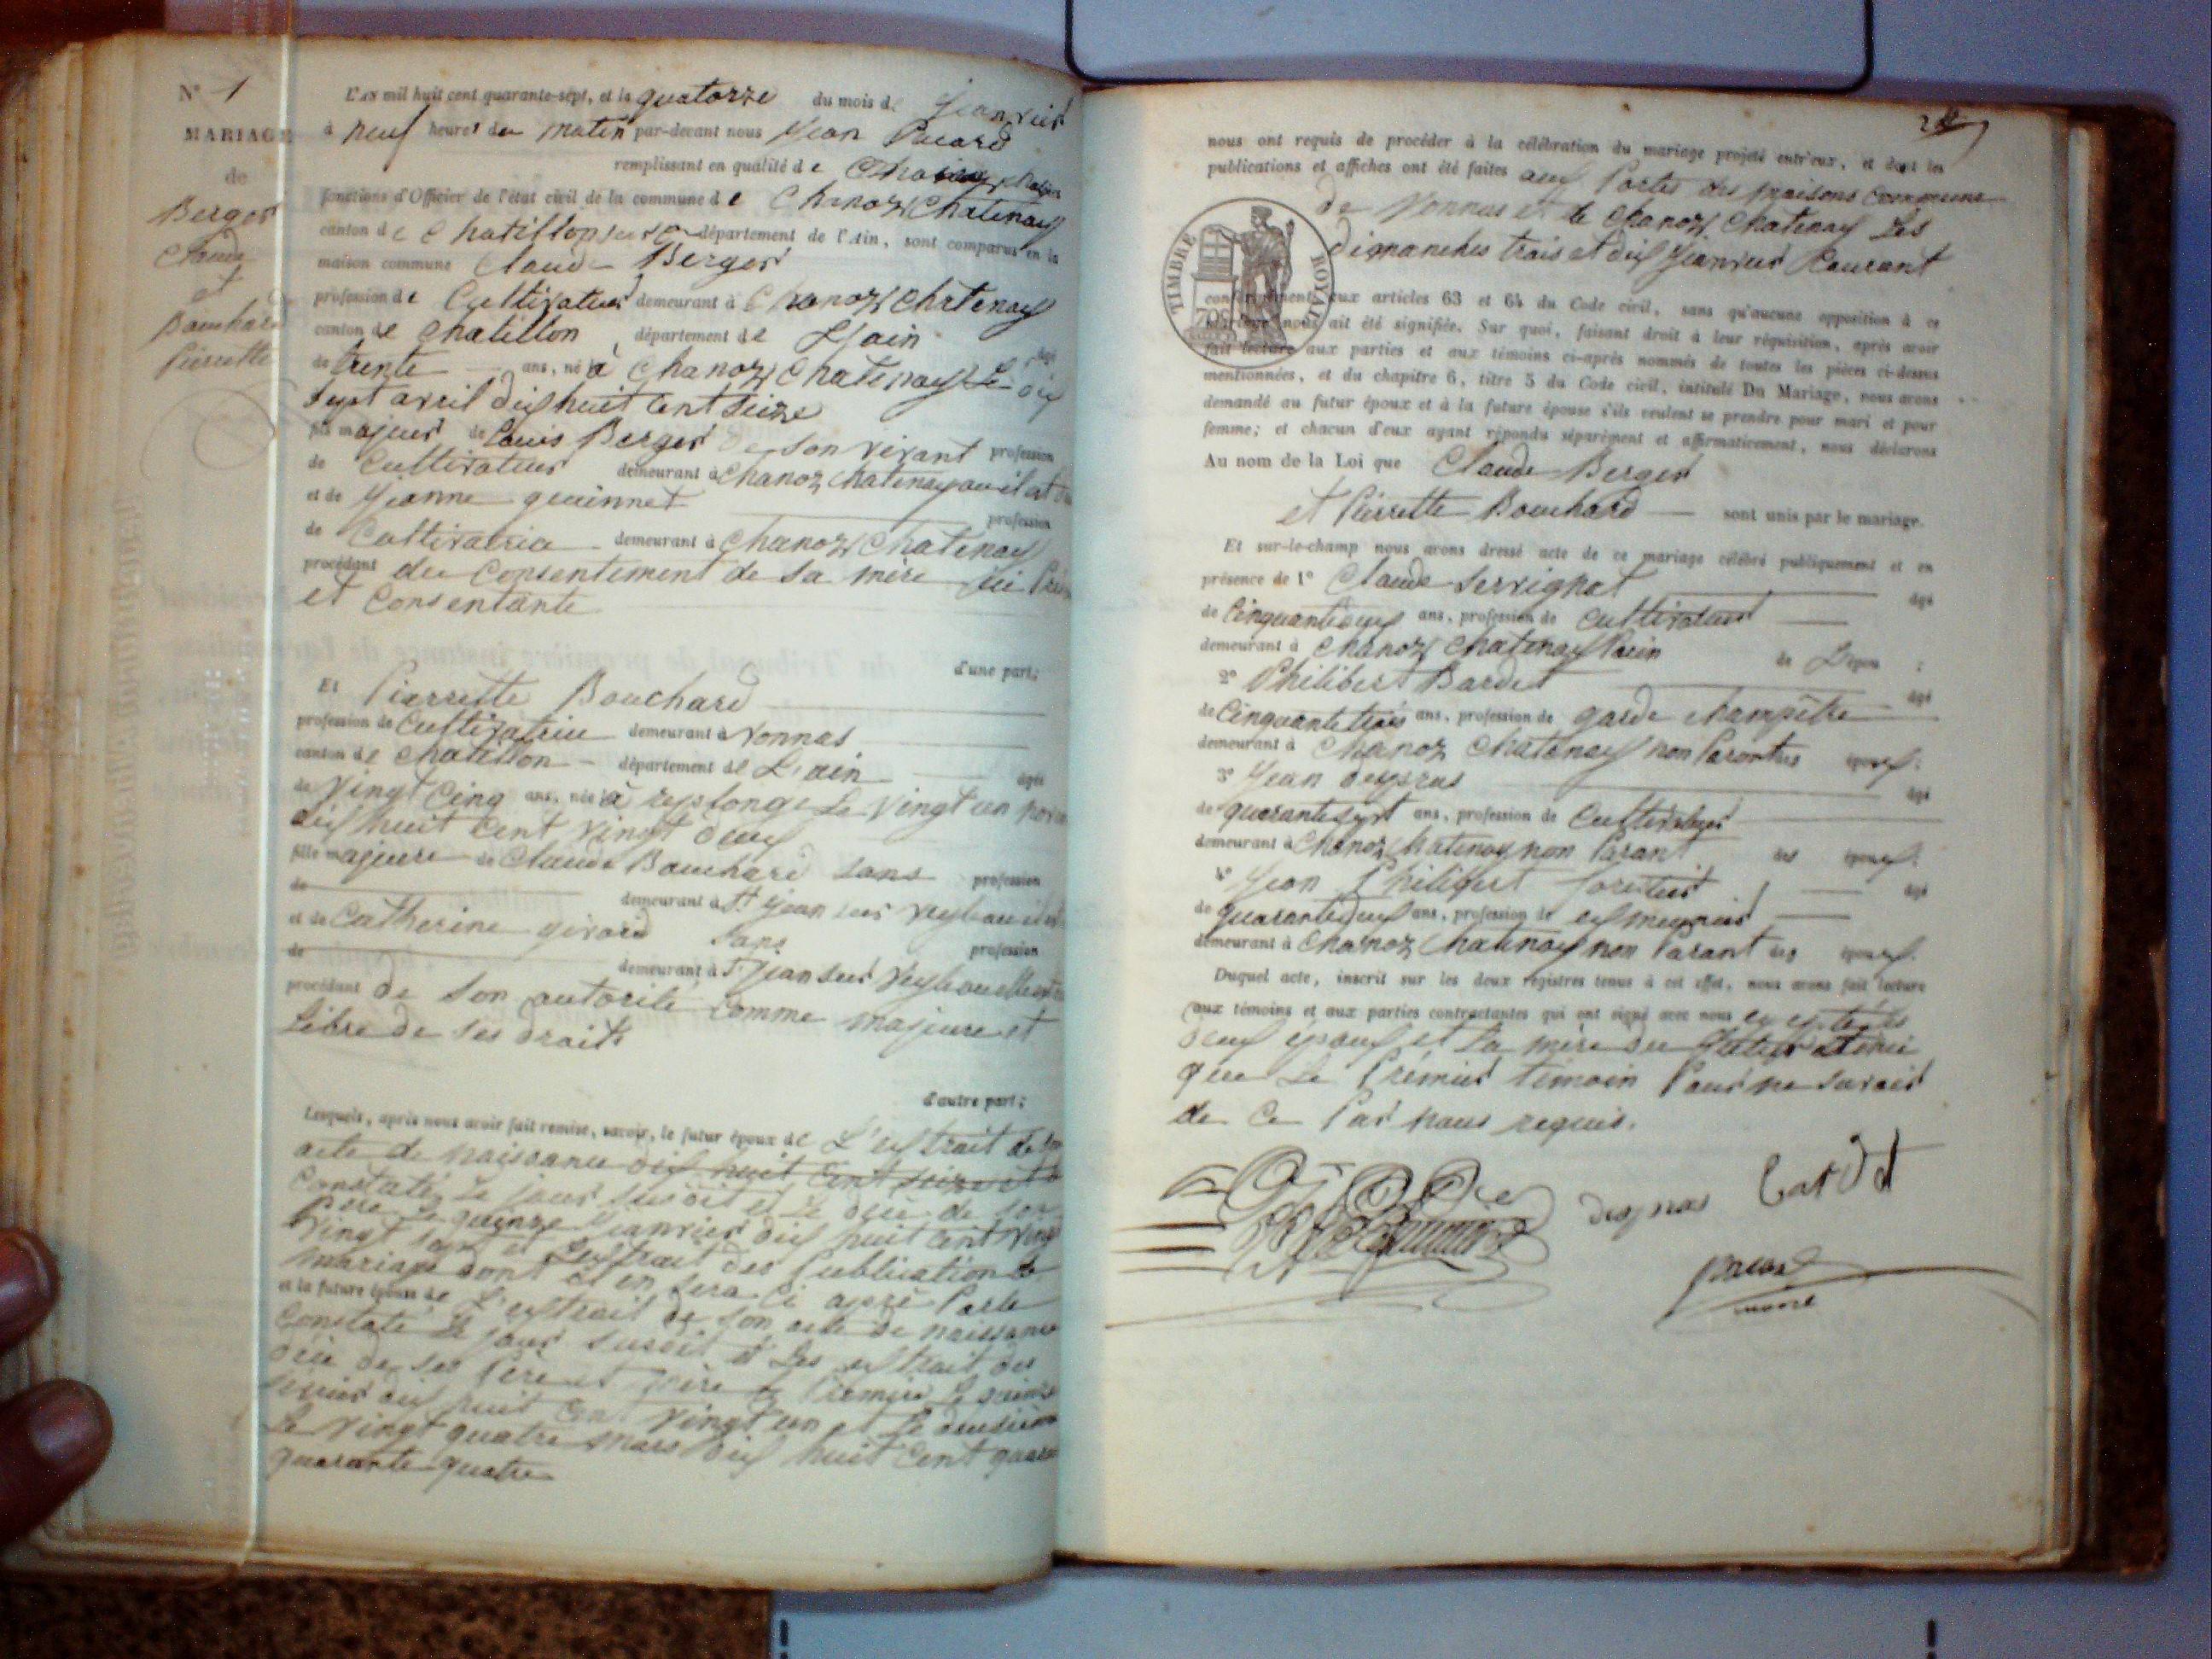 N° 1
MARIAGE
de
Berger
Claude
et
Bouchard
Pierrette
L'AN mil huit cent quarante-sept, et le quatorze du mois de Jeanvier
à neuf heures du matin par-devant nous Jean Pacard
remplissant en qualité de
fonctions d'Officier de l'état civil de la commune de Chanoz Chatenay
canton de Chatillon sur département de l'Ain, sont comparus en la
maison commune Claude Berger
profession de Cultivateur demeurant à Chanoz Chatenay
canton de Chatillon, département de L'ain âgé
de trente ans, né à Chanoz Chatenay Le dix
sept avril dix huit cent seize
fils majeur de Louis Berger de son vivant profession
de Cultivateur demeurant à Chanoz Chatenay ou il est
et de Jeanne guinnet profession
de Cultivatrice demeurant à Chanoz Chatenay
procédant du consentement de sa mère ici
et Consentante
d'une part;
Et Pierrette Bouchard
profession de Cultivatrice demeurant à Vonnas
canton de Chatillon département de L'ain âgée
de Vingt Cinq ans, née à replonge Le Vingt un
dix huit Cent Vingt deux
fille majeure de Claude Bouchard sans profession
de demeurant à St jean sur Veyle ou il
et de Catherine girard sans profession
de demeurant à St jean sur Veyle ou elle est
procédant de son autorité comme majeure et
Libre de ses droits
d'autre part;
Lesquels, après nous avoir fait remise, savoir, le futur époux de L'extrait de
acte de naissance dix huit Cent seize et
Constaté Le jour susdit et Le de son
Père Le quinze Jeanvier dix huit Cent Vingt
et L'extrait des Publication de
mariage dont il en sera Ci après Parlé
et la future épouse de L'extrait de son acte de naissance
Constaté Le jour susdit et Les extrait des
de ses Père et mère Le Premier Le
dix huit Cent Vingt un et Le deusième
Le Vingt quatre mars dix huit Cent
quarante quatre
nous ont requis de procéder à la célébration du mariage projeté entr'eux, et dont les
publications et affiches ont été faites aux Portes des maisons Commune
de Vonnas et de Chanoz Chatenay Les
dimanches trois et dix Jeanvier Courant
conformément aux articles 63 et 64 du Code civil, sans qu'aucune opposition à ce
mariage nous ait été signifiée. Sur quoi, faisant droit à leur réquisition, après avoir
fait lecture aux parties et aux témoins ci-après nommés de toutes les pièces ci-dessus
mentionnées, et du chapitre 6, titre 5 du Code civil, intitulé Du Mariage, nous avons
demandé au futur époux et à la future épouse s'ils veulent se prendre pour mari et pour
femme; et chacun d'eux ayant répondu séparément et affirmativement, nous déclarons
Au nom de la Loi que Claude Berger
et Pierrette Bouchard sont unis par le mariage.
Et sur-le-champ nous avons dressé acte de ce mariage célébré publiquement et en
présence de 1° Claude Servignat âgé
de Cinquante deux ans, profession de Cultivateur
demeurant à Chanoz Chatenay de L'epou ;
2° Philibert Bardet âgé
de Cinquante trois ans, profession de garde champêtre
demeurant à Chanoz Chatenay non Parent des époux;
3° Jean despras âgé
de quarante sept ans, profession de Cultivateur
demeurant à Chanoz Chatenay non Parant des époux;
4° Jean Philibert âgé
de quarante deux ans, profession de
demeurant à Chanoz Chatenay non Parant des époux.
Duquel acte, inscrit sur les deux registres tenus à cet effet, nous avons fait lecture
aux témoins et aux parties contractantes qui ont signé avec nous excepté les
deux époux et La mère du futur
que Le Premier temoin Pour ne savoir
de Ce Par nous requis.
despras Bardet
Pacard
maire
TIMBRE ROYAL
70c